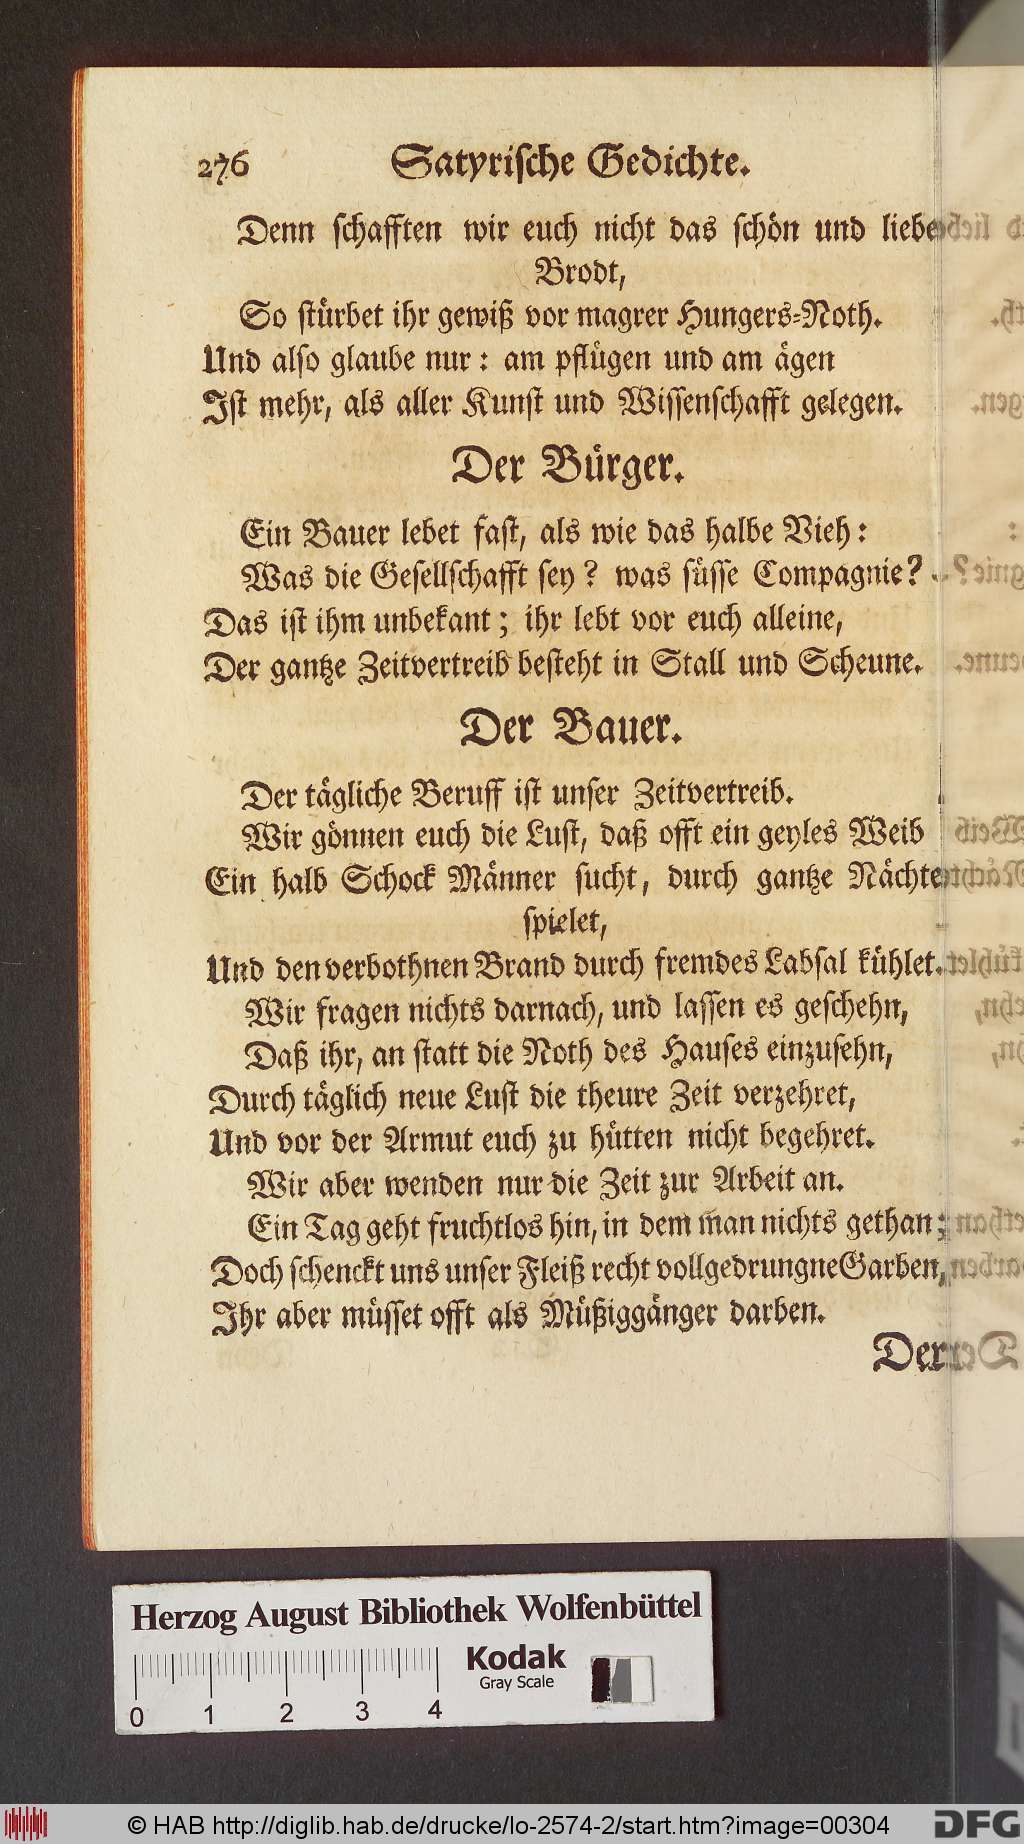 276 Satyrische Gedichte.
Denn schafften wir euch nicht das schön und liebe
Brodt,
So stürbet ihr gewiß vor magrer Hungers-Noth.
Und also glaube nur: am pflügen und am ägen
Ist mehr, als aller Kunst und Wissenschafft gelegen.
Der Bürger.
Ein Bauer lebet fast, als wie das halbe Vieh:
Was die Gesellschafft sey? was süsse Compagnie?
Das ist ihm unbekant; ihr lebt vor euch alleine,
Der gantze Zeitvertreib besteht in Stall und Scheune.
Der Bauer.
Der tägliche Beruff ist unser Zeitvertreib.
Wir gönnen euch die Lust, daß offt ein geyles Weib
Ein halb Schock Männer sucht, durch gantze Nächte
spielet,
Und den verbothnen Brand durch fremdes Labsal kühlet.
Wir fragen nichts darnach, und lassen es geschehn,
Daß ihr, an statt die Noth des Hauses einzusehn,
Durch täglich neue Lust die theure Zeit verzehret,
Und vor der Armut euch zu hütten nicht begehret.
Wir aber wenden nur die Zeit zur Arbeit an.
Ein Tag geht fruchtlos hin, in dem man nichts gethan;
Doch schenckt uns unser Fleiß recht vollgedrungne Garben,
Ihr aber müsset offt als Müßiggänger darben.
Der
Herzog August Bibliothek Wolfenbüttel
Kodak
Gray Scale
0 1 2 3 4
© HAB http://diglib.hab.de/drucke/lo-2574-2/start.htm?image=00304
DFG